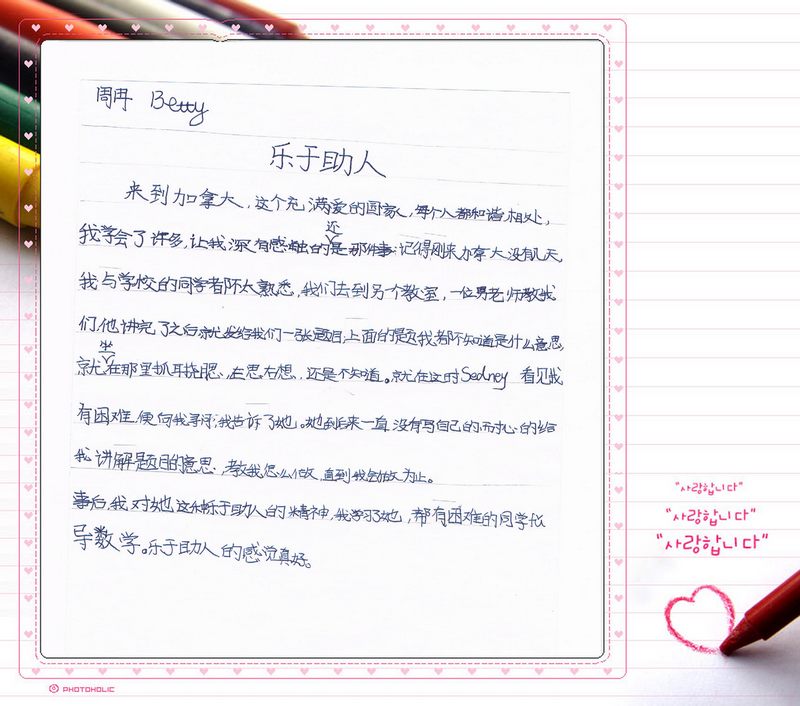 周冉 Betty
乐于助人
来到加拿大，这个充满爱的国家，每个人都和谐相处，
还
我学会了许多，让我深有感触的是那件事:记得刚来加拿大没有几天，
我与学校的同学都不太熟悉，我们去到另个教室，一位男老师教我
们，他讲完了之后就发给我们一张题目，上面的题我都不知道是什么意思，
坐
就在那里抓耳挠腮，左思右想，还是不知道。就在这时Sedney 看见我
有困难，便向我寻问，我告诉了她。她到后来一直没有写自己的，耐心的给
我讲解题目的意思，教我怎么做，直到我会做为止。
事后，我对她这乐于助人的精神，我学习了她，帮有困难的同学
导数学。乐于助人的感觉真好。
"사랑합니다"
"사랑합니다"
"사랑합니다"
PHOTOHOLIC